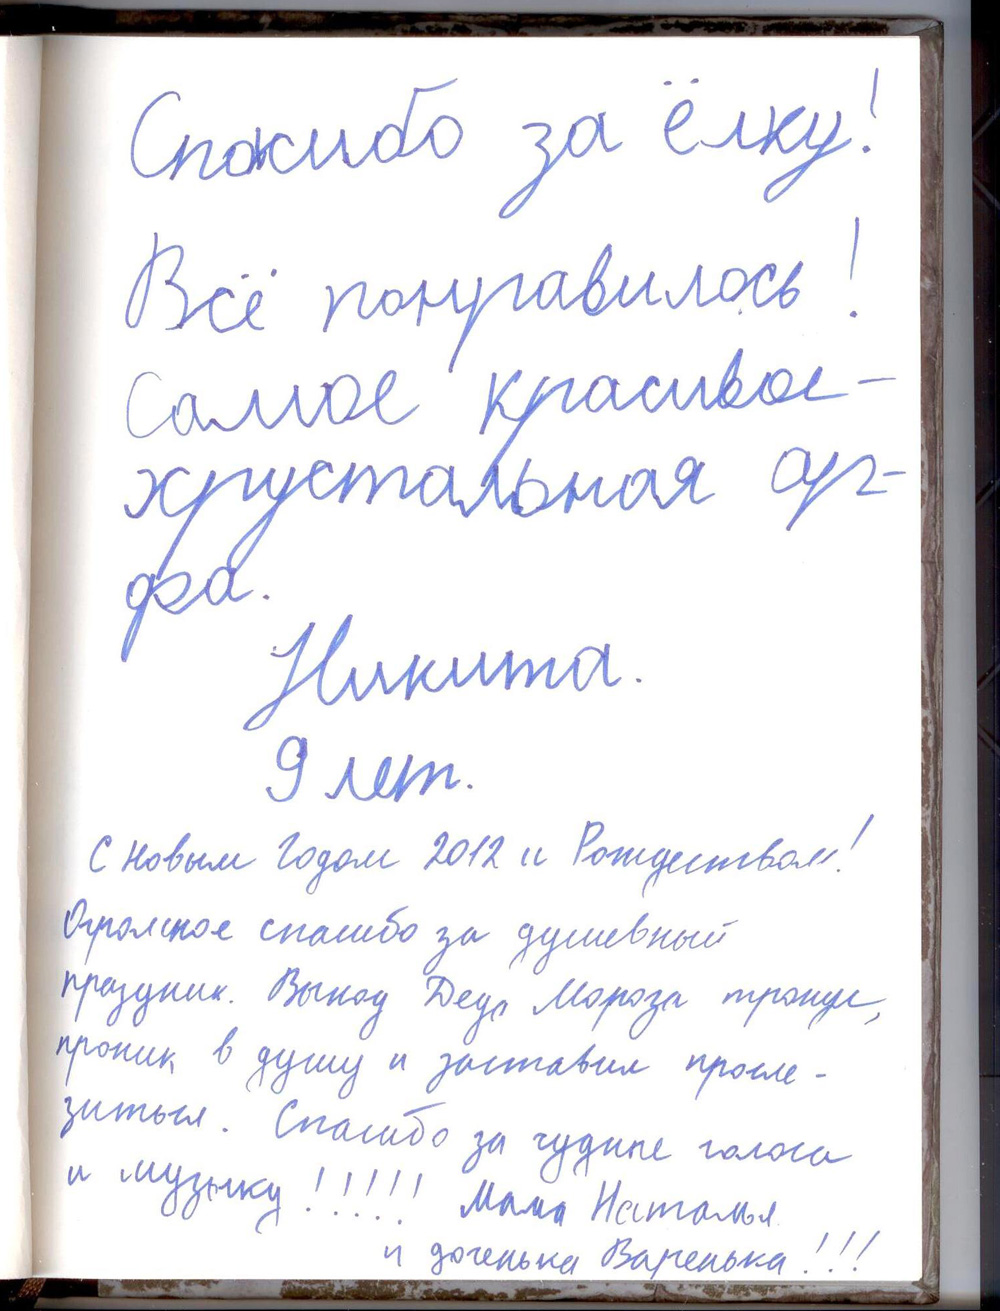 Спасибо за ёлку!
Всё понравилось!
Самое красивое -
хрустальная ар-
фа.
Никита.
9 лет.
С Новым Годом 2012 и Рождеством!
Огромное спасибо за душевный
праздник. Выход Деда Мороза тронул,
проник в душу и заставил просле-
зиться. Спасибо за чудные голоса
и музыку!!!!! Мама Наталья
и доченька Варенька!!!